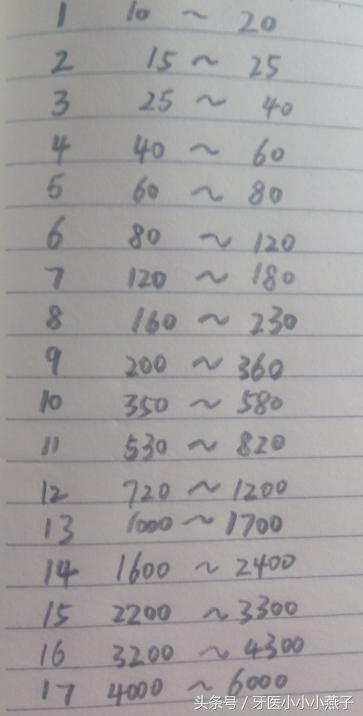 1 10 ~ 20
2 15 ~ 25
3 25 ~ 40
4 40 ~ 60
5 60 ~ 80
6 80 ~ 120
7 120 ~ 180
8 160 ~ 230
9 200 ~ 360
10 350 ~ 580
11 530 ~ 820
12 720 ~ 1200
13 1000 ~ 1700
14 1600 ~ 2400
15 2200 ~ 3300
16 3200 ~ 4300
17 4000 ~ 6000
头条号 / 牙医小小小燕子